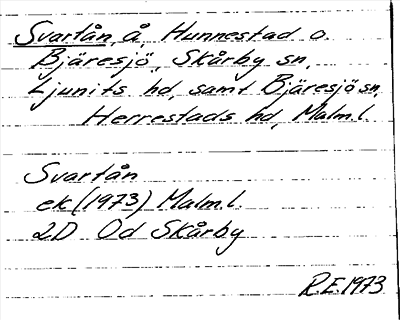 Svartån, å Hunnestad o.
Bjäresjö, Skårby sn,
Ljunits hd, samt Bjäresjö sn,
Herrestads hd, Malm.l.
Svartån
ek (1973) Malm.l.
2D Od Skårby
R.E. 1973